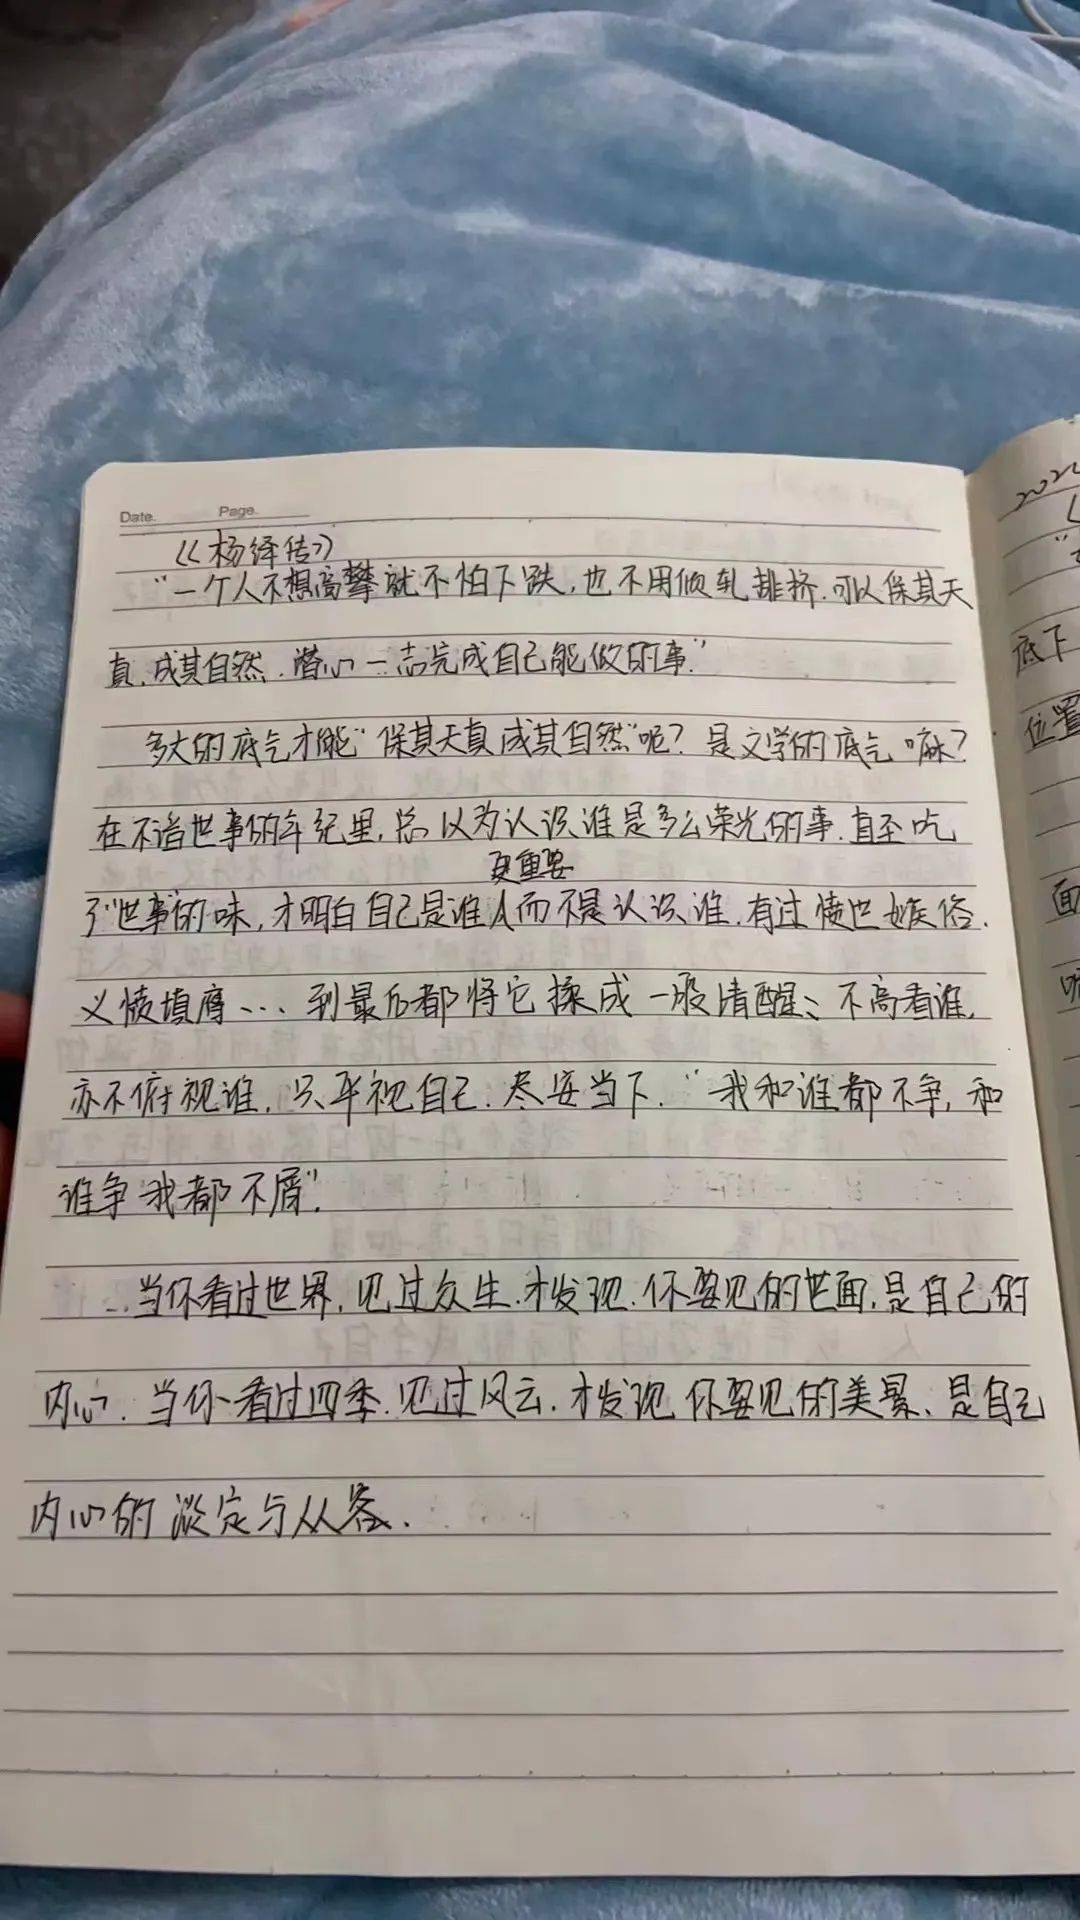 Date.  Page.
《杨绛传》
“一个人不想高攀就不怕下跌，也不用倾轧排挤.可以保其天
真，成其自然.潜心一志完成自己能做的事.”
多大的底气才能“保其天真成其自然”呢？是文学的底气嘛？
在不谙世事的年纪里，总以为认识谁是多么荣光的事.直至吃
更重要
了“世事”的味，才明白自己是谁而不是认识谁.有过愤世嫉俗.
义愤填膺……到最后都将它揉成一股清醒：不高看谁，
亦不俯视谁，只平视自己.尽安当下.“我和谁都不争，和
谁争我都不屑”.
…当你看过世界，见过众生.才发现.你要见的世面，是自己的
内心.当你看过四季.见过风云.才发现你要见的美景、是自己
内心的淡定与从容.
202
底下
位置
面